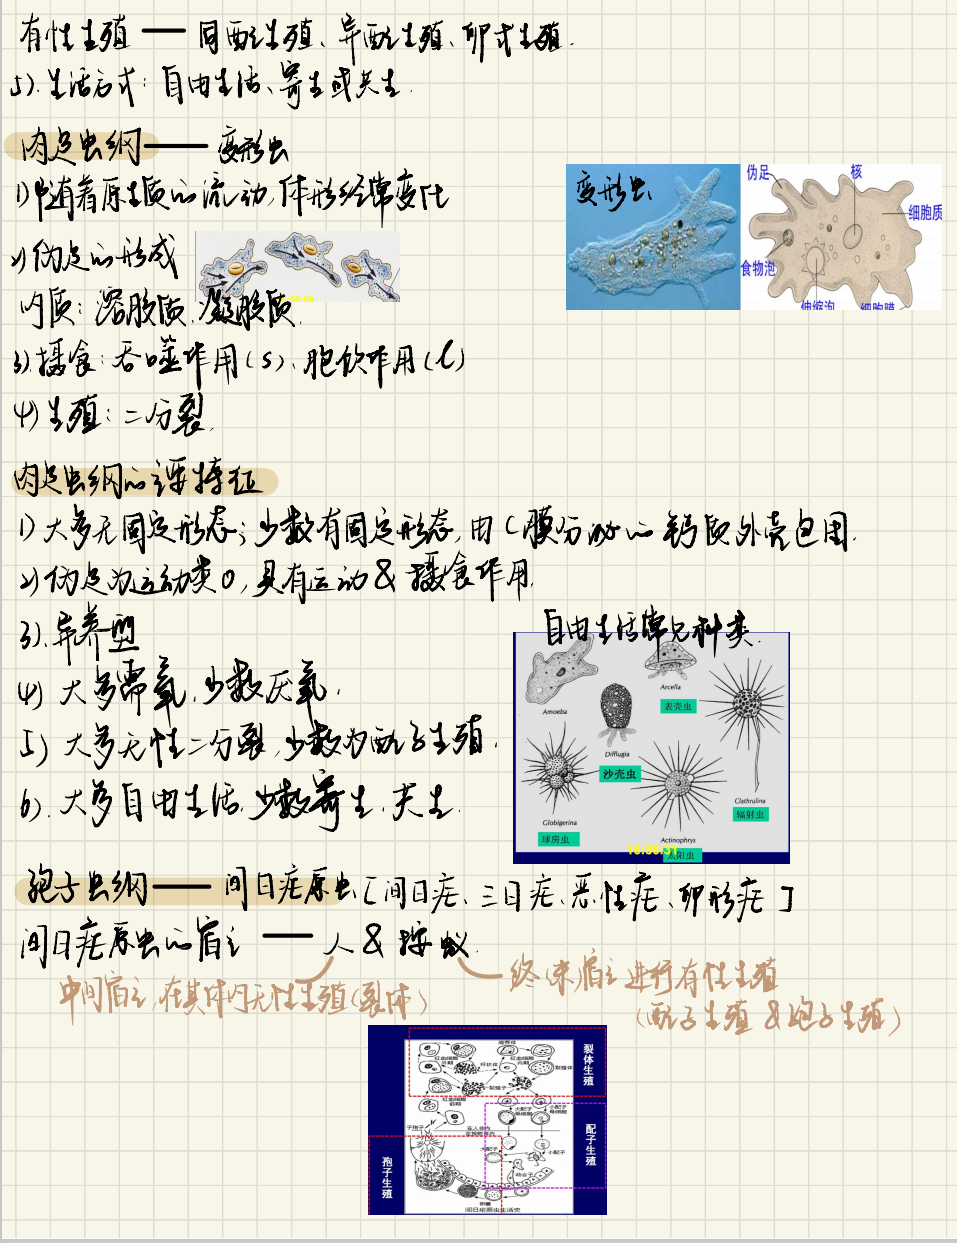 有性生殖 —— 同配生殖、异配生殖、卵式生殖.
5). 生活方式: 自由生活、寄生或共生.
肉足虫纲 —— 变形虫
1) 随着原生质的流动, 体形经常变化
2) 伪足的形成
内质: 溶胶质, 凝胶质.
3). 摄食: 吞噬作用(s)、胞饮作用(l)
4) 生殖: 二分裂.
变形虫
伪足
核
细胞质
食物泡
伸缩泡
细胞膜
肉足虫纲的主要特征
1) 大多无固定形态; 少数有固定形态, 由C膜分泌的钙质外壳包围.
2) 伪足为运动类O, 具有运动&摄食作用.
3). 异养型
4) 大多需氧, 少数厌氧.
5) 大多无性二分裂, 少数为配子生殖.
6). 大多自由生活, 少数寄生, 共生.
自由生活常见种类.
Amoeba
Arcella
表壳虫
Difflugia
沙壳虫
Clathrulina
辐射虫
Globigerina
球房虫
Actinophrys
太阳虫
孢子虫纲 —— 间日疟原虫 [间日疟、三日疟、恶性疟、卵形疟]
间日疟原虫的宿主 —— 人 & 按蚊.
中间宿主, 在其体内无性生殖(裂体)
终(末)宿主 进行有性生殖
(配子生殖 & 孢子生殖)
裂体生殖
配子生殖
孢子生殖
滋养体
环状体
裂殖体
裂殖子
子孢子
大配子
小配子
间日疟原虫生活史